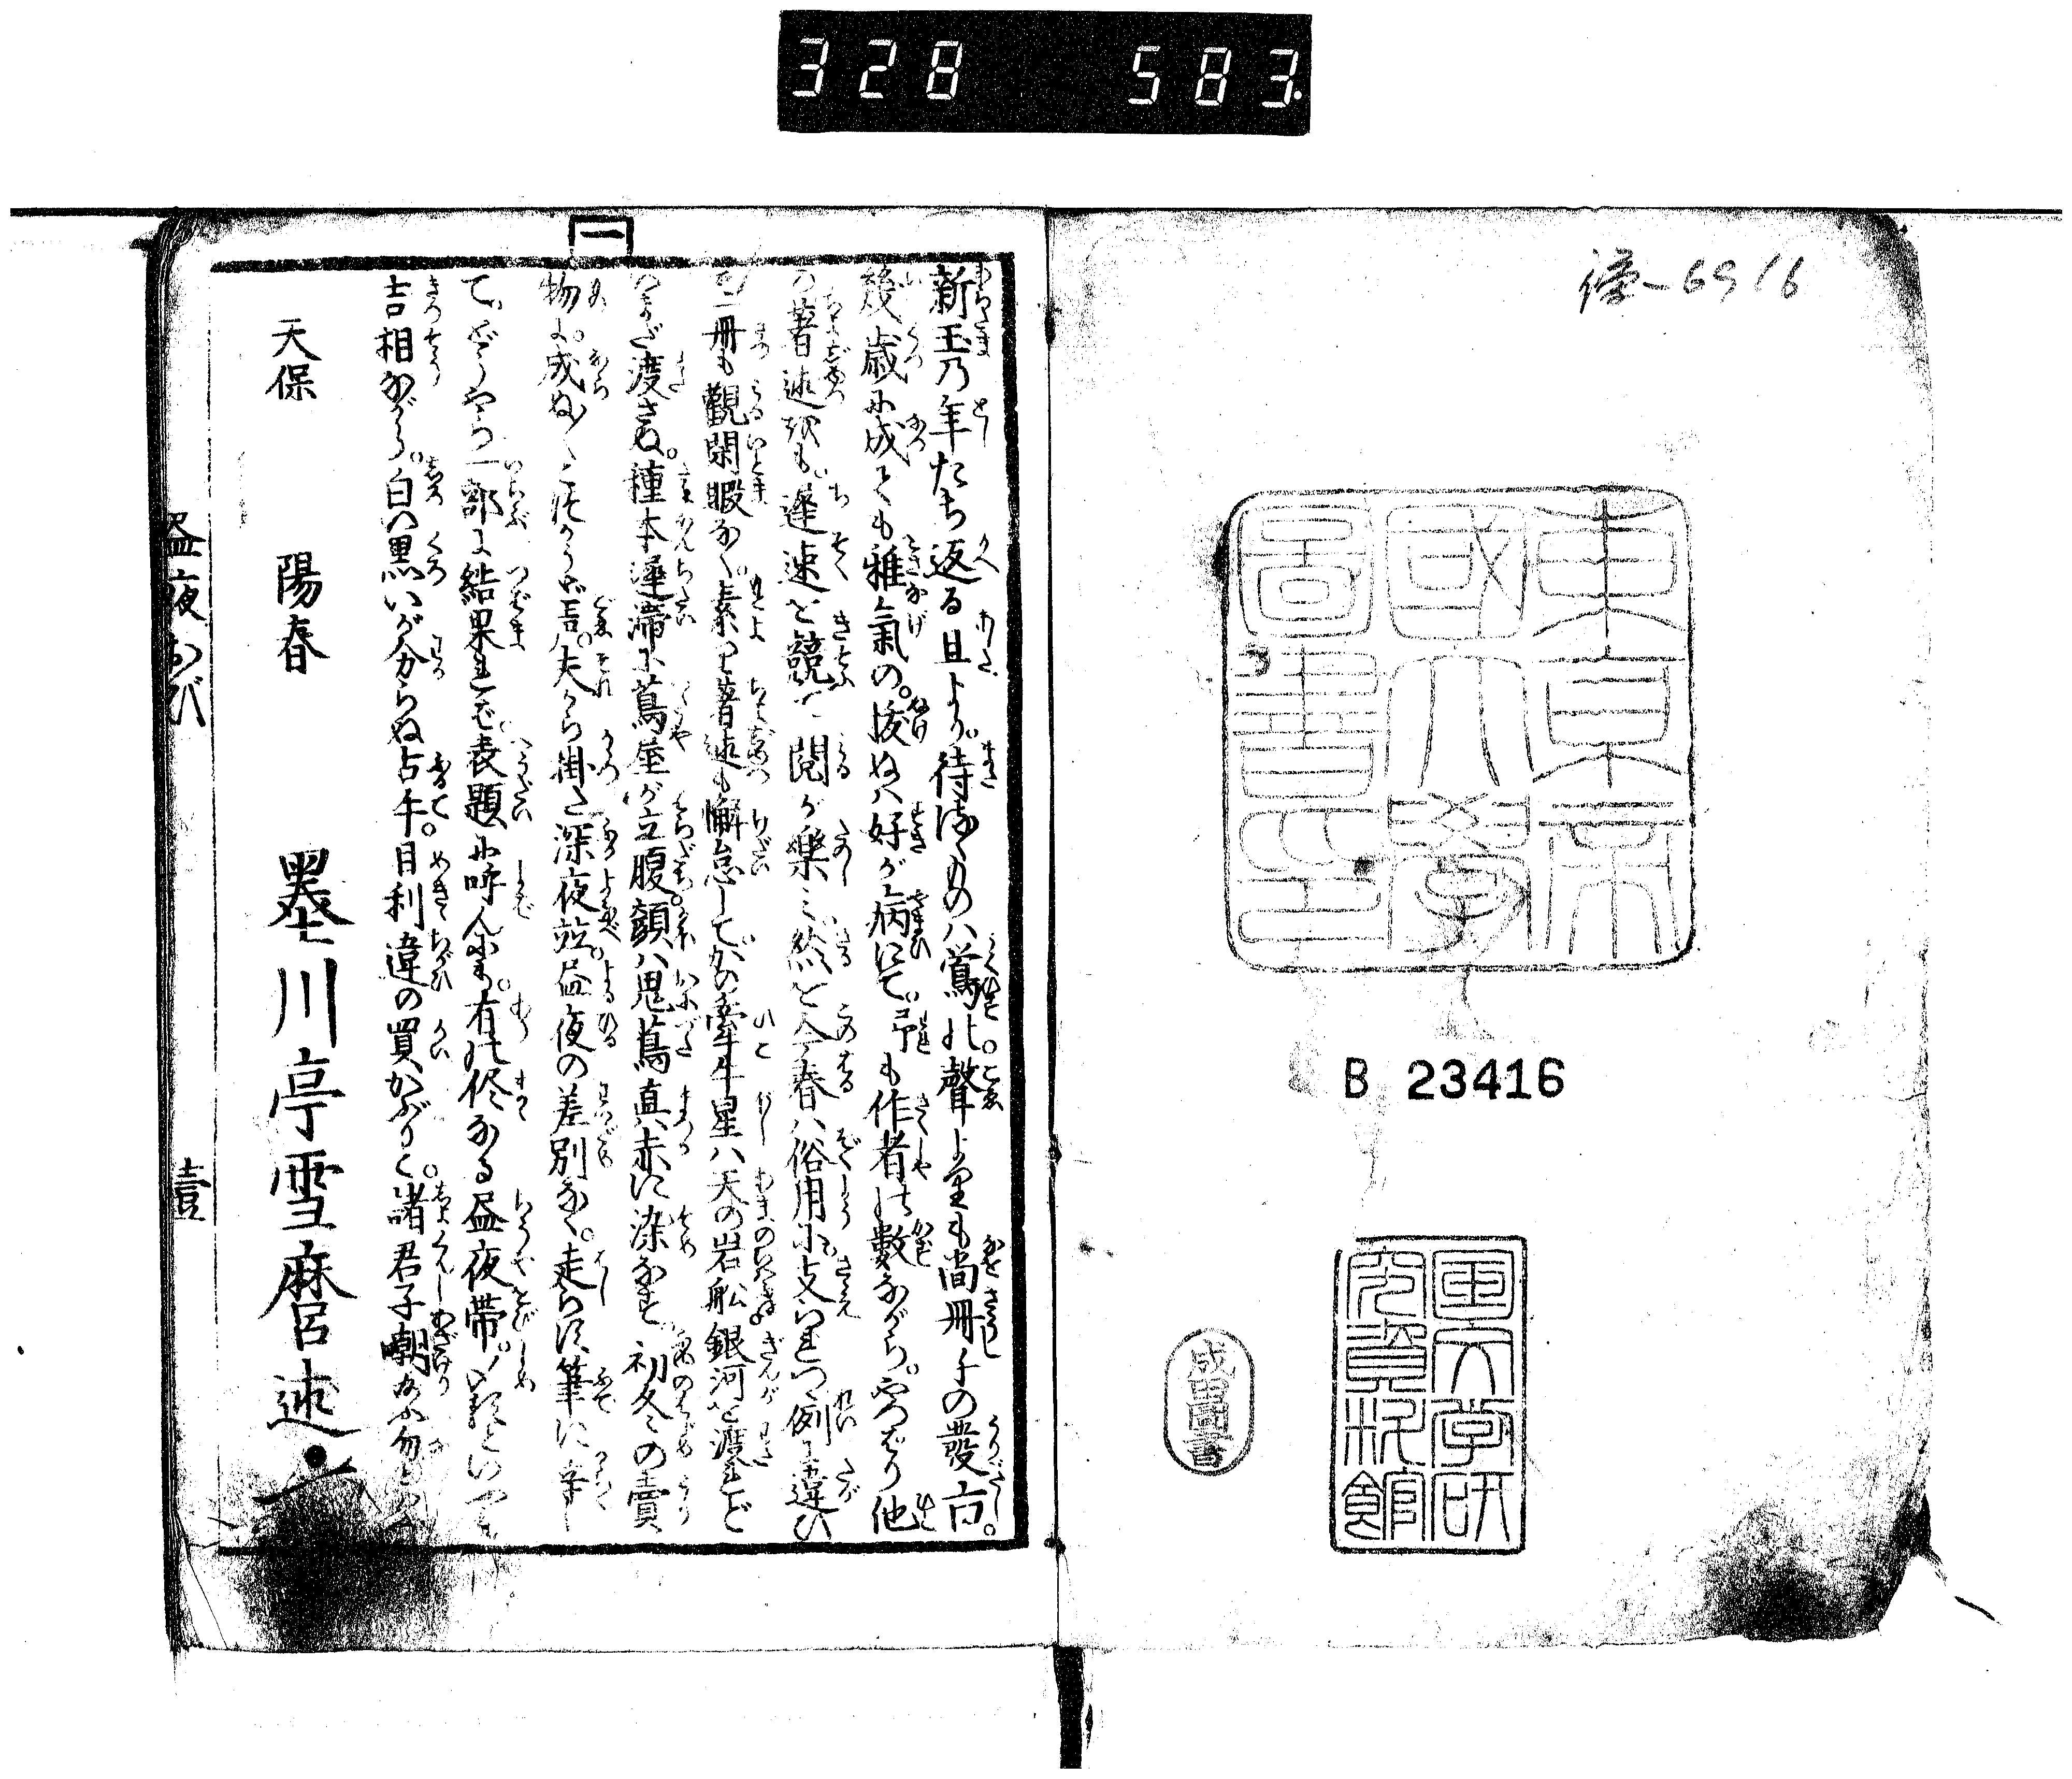 328 583.
僚-6916
東京帝
國大學
圖書之印
B 23416
国文学研
究資料館
成田圖書
一
新玉乃年たち返る旦より。待侘るものハ鶯の聲よりも尚冊子の發市。
幾歳に成ても雅氣の。拔ぬハ好が病にて。予も作者の數ながら。やつぱり他
の著述を。遲速を競て閲が樂み然と今春ハ俗用に支られつゝ例に違ひ
一冊も觀閑暇なく。素より著述も懈怠してかの牽牛星ハ天の岩船銀河を渡れど
まだ渡さぬ。種本遲滯に蔦屋が立腹。顔ハ鬼蔦真赤に染なす初冬の賣
物に。成ぬ 言。夫から掛た深夜並。昼夜の差別なく。走らす筆に幸
て。どうやら一部に結果れど表題に呼ん 。有の侭なる昼夜帯。
吉相ながら。白ハ黒いが分らぬ占手。目利違の買かぶりく。諸君子嘲給ふ勿
天保 陽春 墨川亭雪麿述
昼夜おび 壹